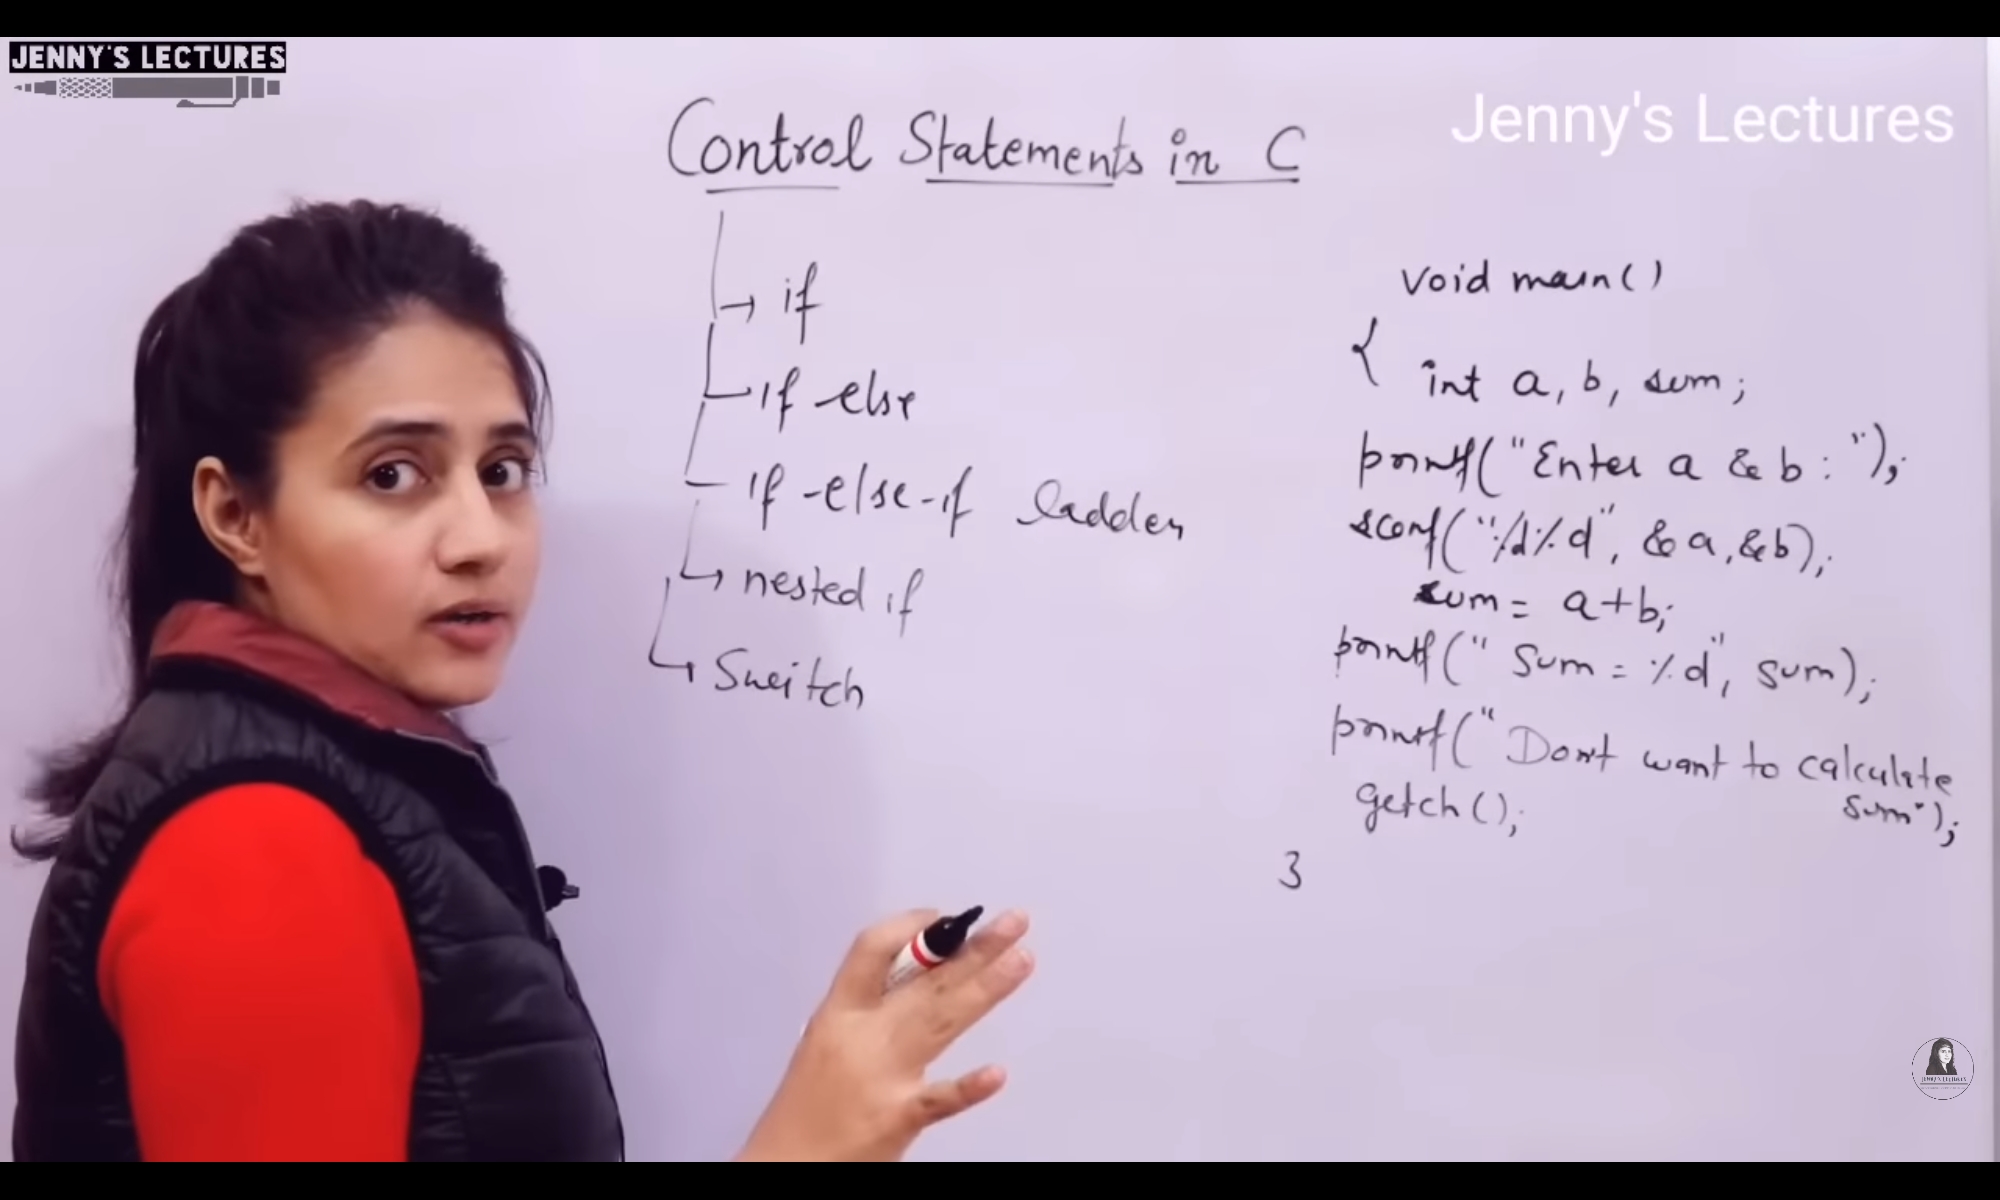 JENNY'S LECTURES
Jenny's Lectures
Control Statements in C
if
if else
if-else-if ladder
nested if
Switch
void main()
{ int a, b, sum;
printf("Enter a & b : ");
scanf("%d%d", &a, &b);
sum = a+b;
printf(" Sum = %d", sum);
printf("Don't want to calculate
sum");
getch();
}
JENNY'S LECTURES